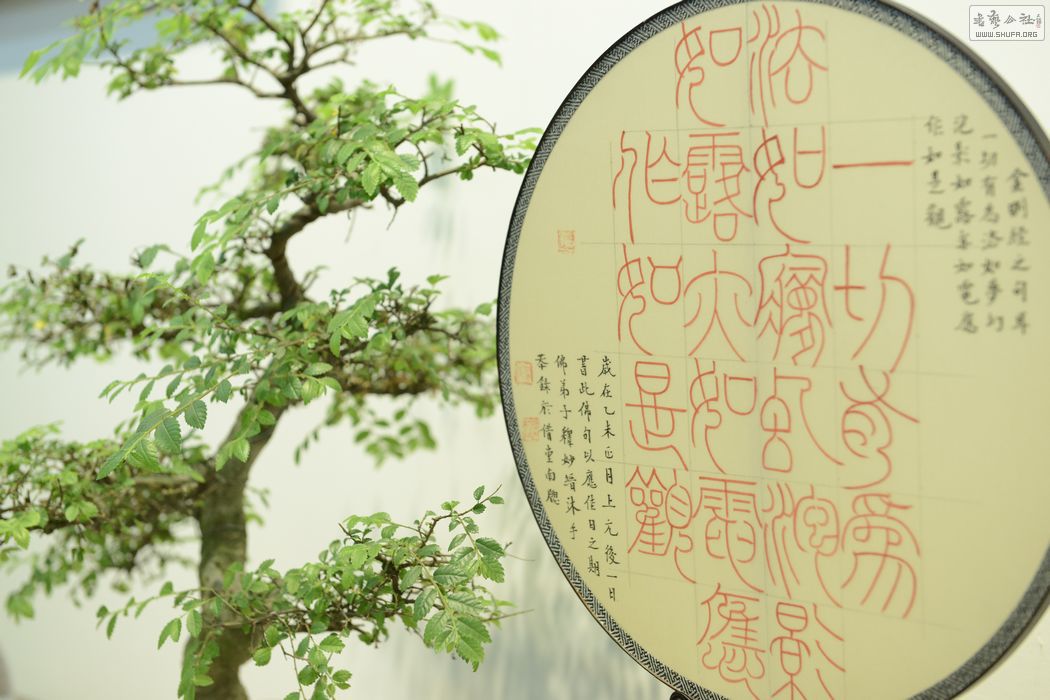 金剛經之句
一切有為法如夢幻
泡影如露亦如電應
作如是觀
一切有為
法如夢幻泡影
如露亦如電應
作如是觀
歲在乙未正月上元後一日
書此佛句以應佳日之期
佛弟子釋妙普沐手
恭錄於借堂南牕
書藝公社
WWW.SHUFA.ORG